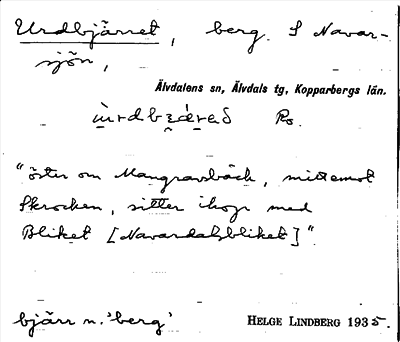 Urdbjärret, berg. S Navar-
sjön,
Älvdalens sn, Älvdals tg, Kopparbergs län.
"öster om Mangravsbäck, mittemot
Skrocken, sitter ihop med
Bliket [Navardalsbliket]".
bjärr n. 'berg' HELGE LINDBERG 1935.